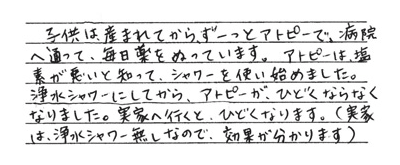 子供は産まれてから、ずーっとアトピーで、病院
へ通って、毎日薬をぬっています。アトピーは、塩
素が悪いと知って、シャワーを使い始めました。
浄水シャワーにしてから、アトピーが、ひどくならなく
なりました。実家へ行くと、ひどくなります。(実家
は、浄水シャワー無しなので、効果が分かります)